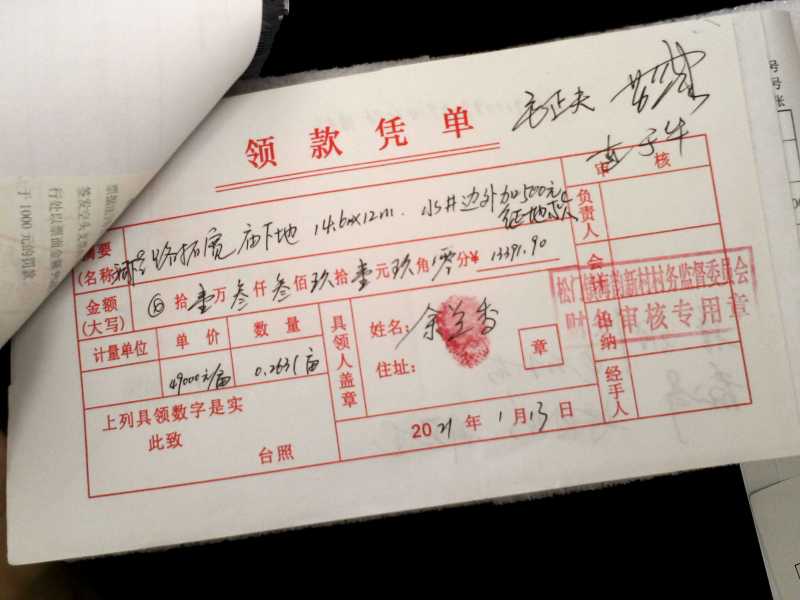 领款凭单
审 核
摘要
(名称)
路拓宽 庙下地 14.60×12m. 水井边外加500元
征地款
负责人
金额
(大写)
⊗ 拾壹万叁仟叁佰玖拾壹元玖角零分¥ 13391.90
会计
出纳
计量单位 单 价 数 量
49000元/亩 0.2631亩
具领人盖章
姓名: 余兰香
住址:
章
松门镇 新村村务监督委员会
财务审核专用章
经手人
上列具领数字是实
此致
台照
2021年1月13日
签发空头支
行处以票面金额
于1000元的罚款
号
号
账